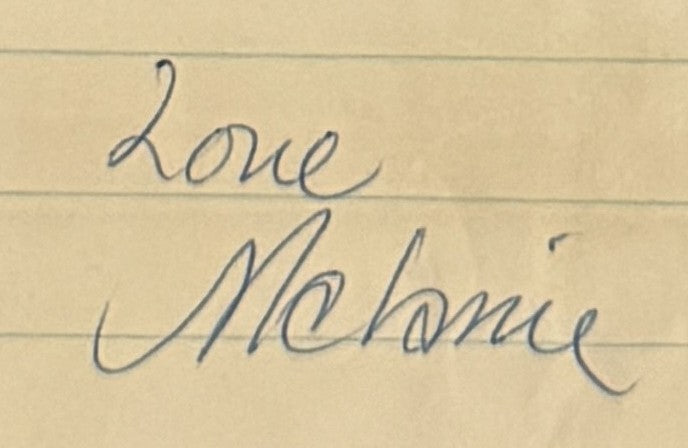 Love
Melanie